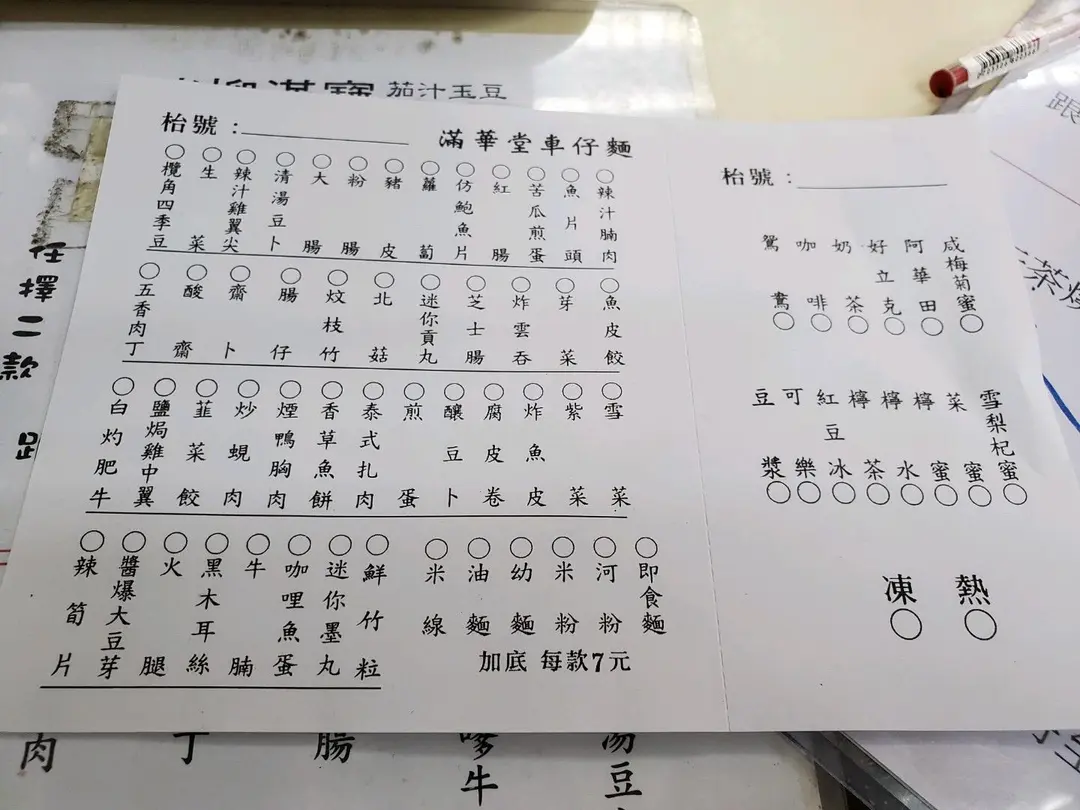 茄汁玉豆
枱號：
滿華堂車仔麵
辣汁腩肉
魚片頭
苦瓜煎蛋
紅腸
仿鮑魚片
蘿蔔
豬皮
粉腸
大腸
清湯豆卜
辣汁雞翼尖
生菜
欖角四季豆
魚皮餃
芽菜
炸雲吞
芝士腸
迷你貢丸
北菇
炆枝竹
腸仔
齋卜
酸齋
五香肉丁
雪菜
紫菜
炸魚皮
腐皮卷
釀豆卜
煎蛋
泰式扎肉
香草魚餅
煙鴨胸肉
炒蜆肉
韮菜餃
鹽焗雞中翼
白灼肥牛
鮮竹粒
迷你墨丸
咖哩魚蛋
牛腩
黑木耳絲
火腿
醬爆大豆芽
辣筍片
即食麵
河粉
米粉
幼麵
油麵
米線
加底 每款7元
枱號：
咸梅菊蜜
阿華田
好立克
奶茶
咖啡
鴛鴦
雪梨杞蜜
菜蜜
檸蜜
檸水
檸茶
紅豆冰
可樂
豆漿
熱
凍
任擇二款
跟
茶
湯豆
嗲牛
腸
丁
肉